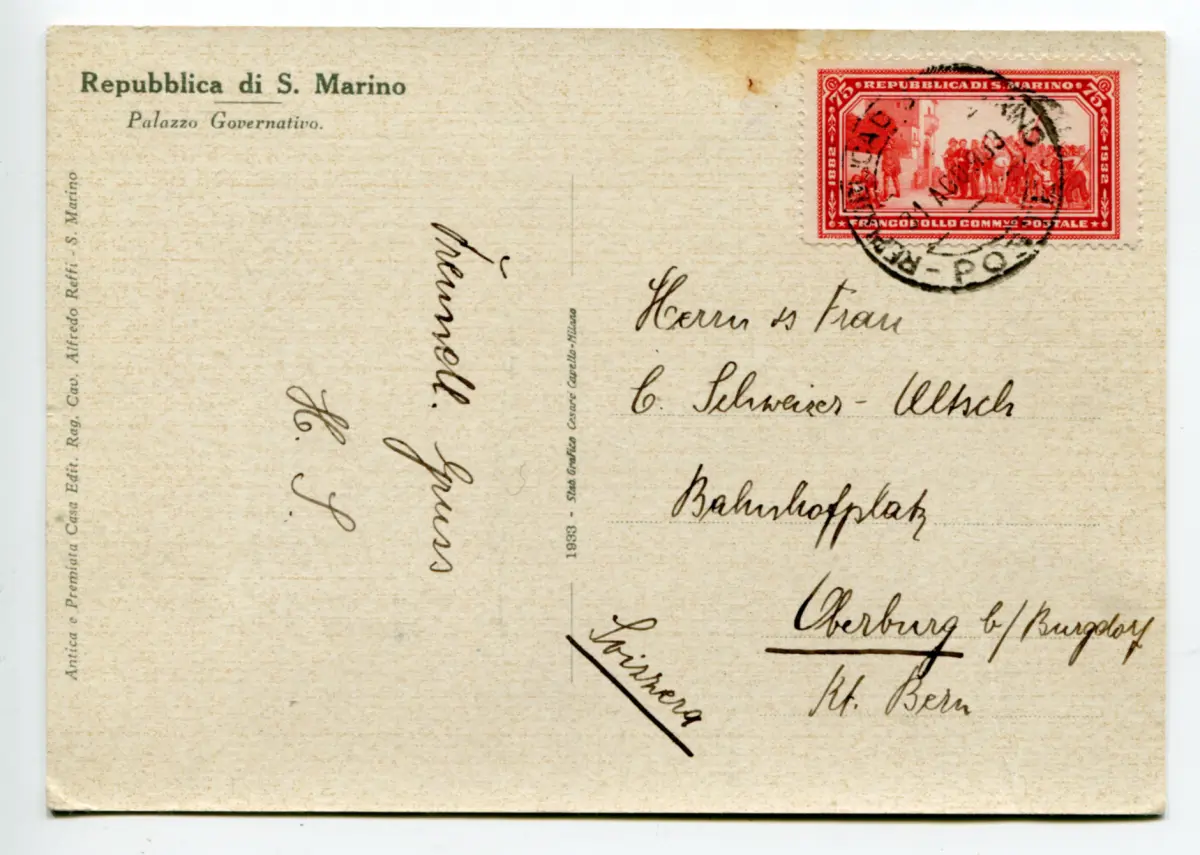 Repubblica di S. Marino
Palazzo Governativo.
Antica e Premiata Casa Edit. Rag. Cav. Alfredo Reffi - S. Marino
Freundl. Gruss
H. S.
1933 - Stab. Grafico Cesare Capello-Milano
75 REPUBBLICA DI S. MARINO 75
1882
1932
FRANCOBOLLO COMM.VO POSTALE
31 AGO
Herrn & Frau
C. Schweizer - Ultsch
Bahnhofplatz
Oberburg b/Burgdorf
Kt. Bern
Svizzera